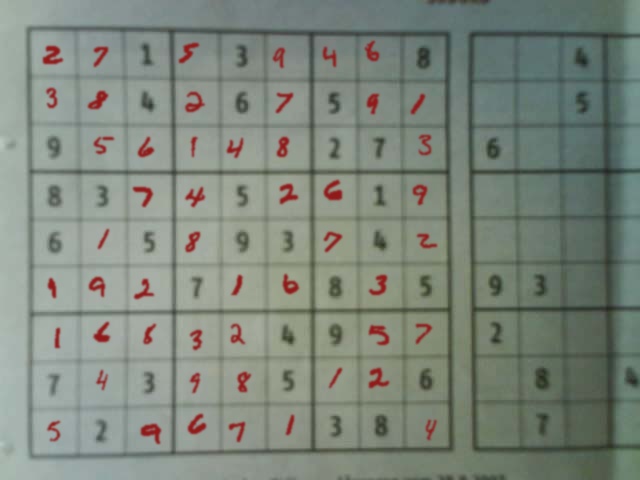 2 7 1 5 3 9 4 6 8 4
3 8 4 2 6 7 5 9 1 5
9 5 6 1 4 8 2 7 3 6
8 3 7 4 5 2 6 1 9
6 1 5 8 9 3 7 4 2
9 2 7 1 6 8 3 5 9 3
1 6 8 3 2 4 9 5 7 2
7 4 3 9 8 5 1 2 6 8 4
5 2 9 6 7 1 3 8 4 7